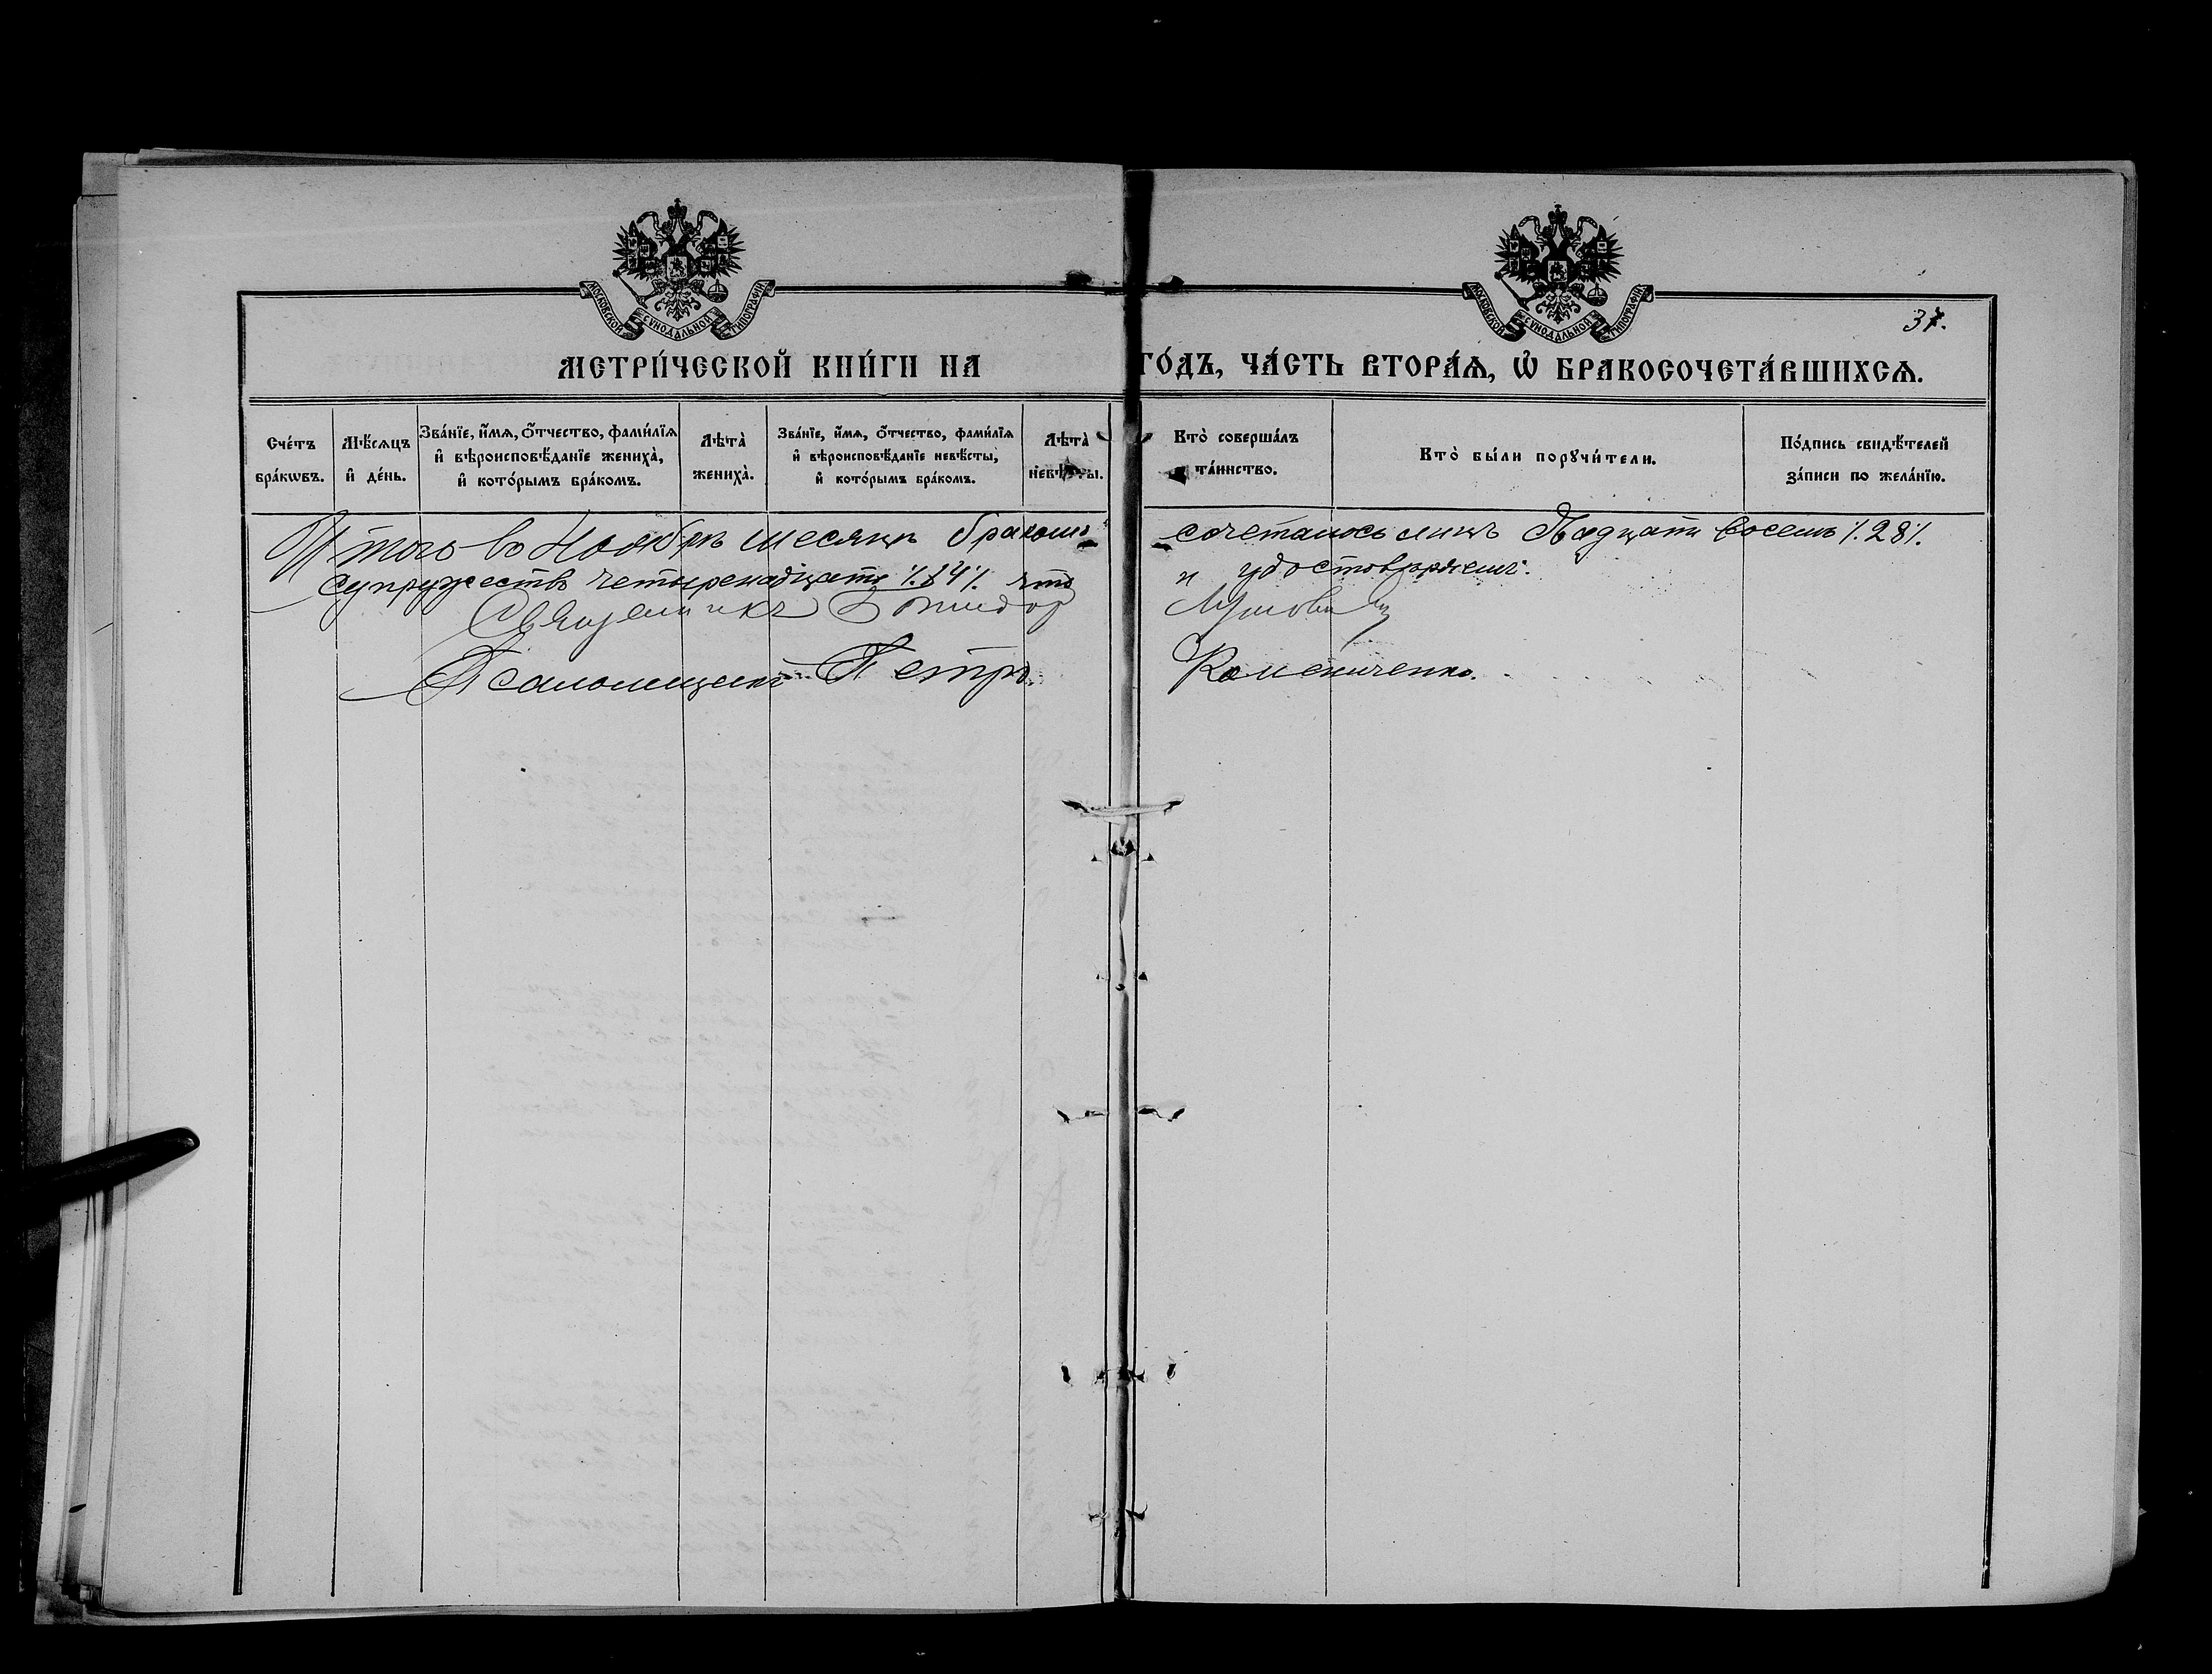 МОСКОВСКОЙ СѴНОДАЛЬНОЙ ТИПОГРАФІИ
МОСКОВСКОЙ СѴНОДАЛЬНОЙ ТИПОГРАФІИ
37.
МЕТРИ́ЧЕСКОЙ КНИ́ГИ НА ГО́ДЪ, ЧА́СТЬ ВТОРА́Ѧ, Ѽ БРАКОСОЧЕТА́ВШИХСѦ.
Сче́тъ
бра́кѡвъ.
Мѣ́сѧцъ
и҆ де́нь.
Зва́нїе, и҆́мѧ, ѻ҆́тчество, фами́лїѧ
и҆ вѣроисповѣ́данїе жениха̀,
и҆ кото́рымъ бра́комъ.
Лѣта̀
жениха̀.
Зва́нїе, и҆́мѧ, ѻ҆́тчество, фами́лїѧ
и҆ вѣроисповѣ́данїе невѣ́сты,
и҆ кото́рымъ бра́комъ.
Лѣта̀
невѣ́сты.
Кто̀ соверша́лъ
та́инство.
Кто̀ бы́ли порꙋчи́тели.
По́дпись свидѣ́телей
за́писи по жела́нїю.
Итого во Ноябрѣ месяцѣ бракомъ сочеталось лицъ Двадцати восемь /.28/.
супружествъ четыренадцать /.14/. что и удостовѣряемъ.
Священникъ
Псаломщикъ Петръ Комениченко.